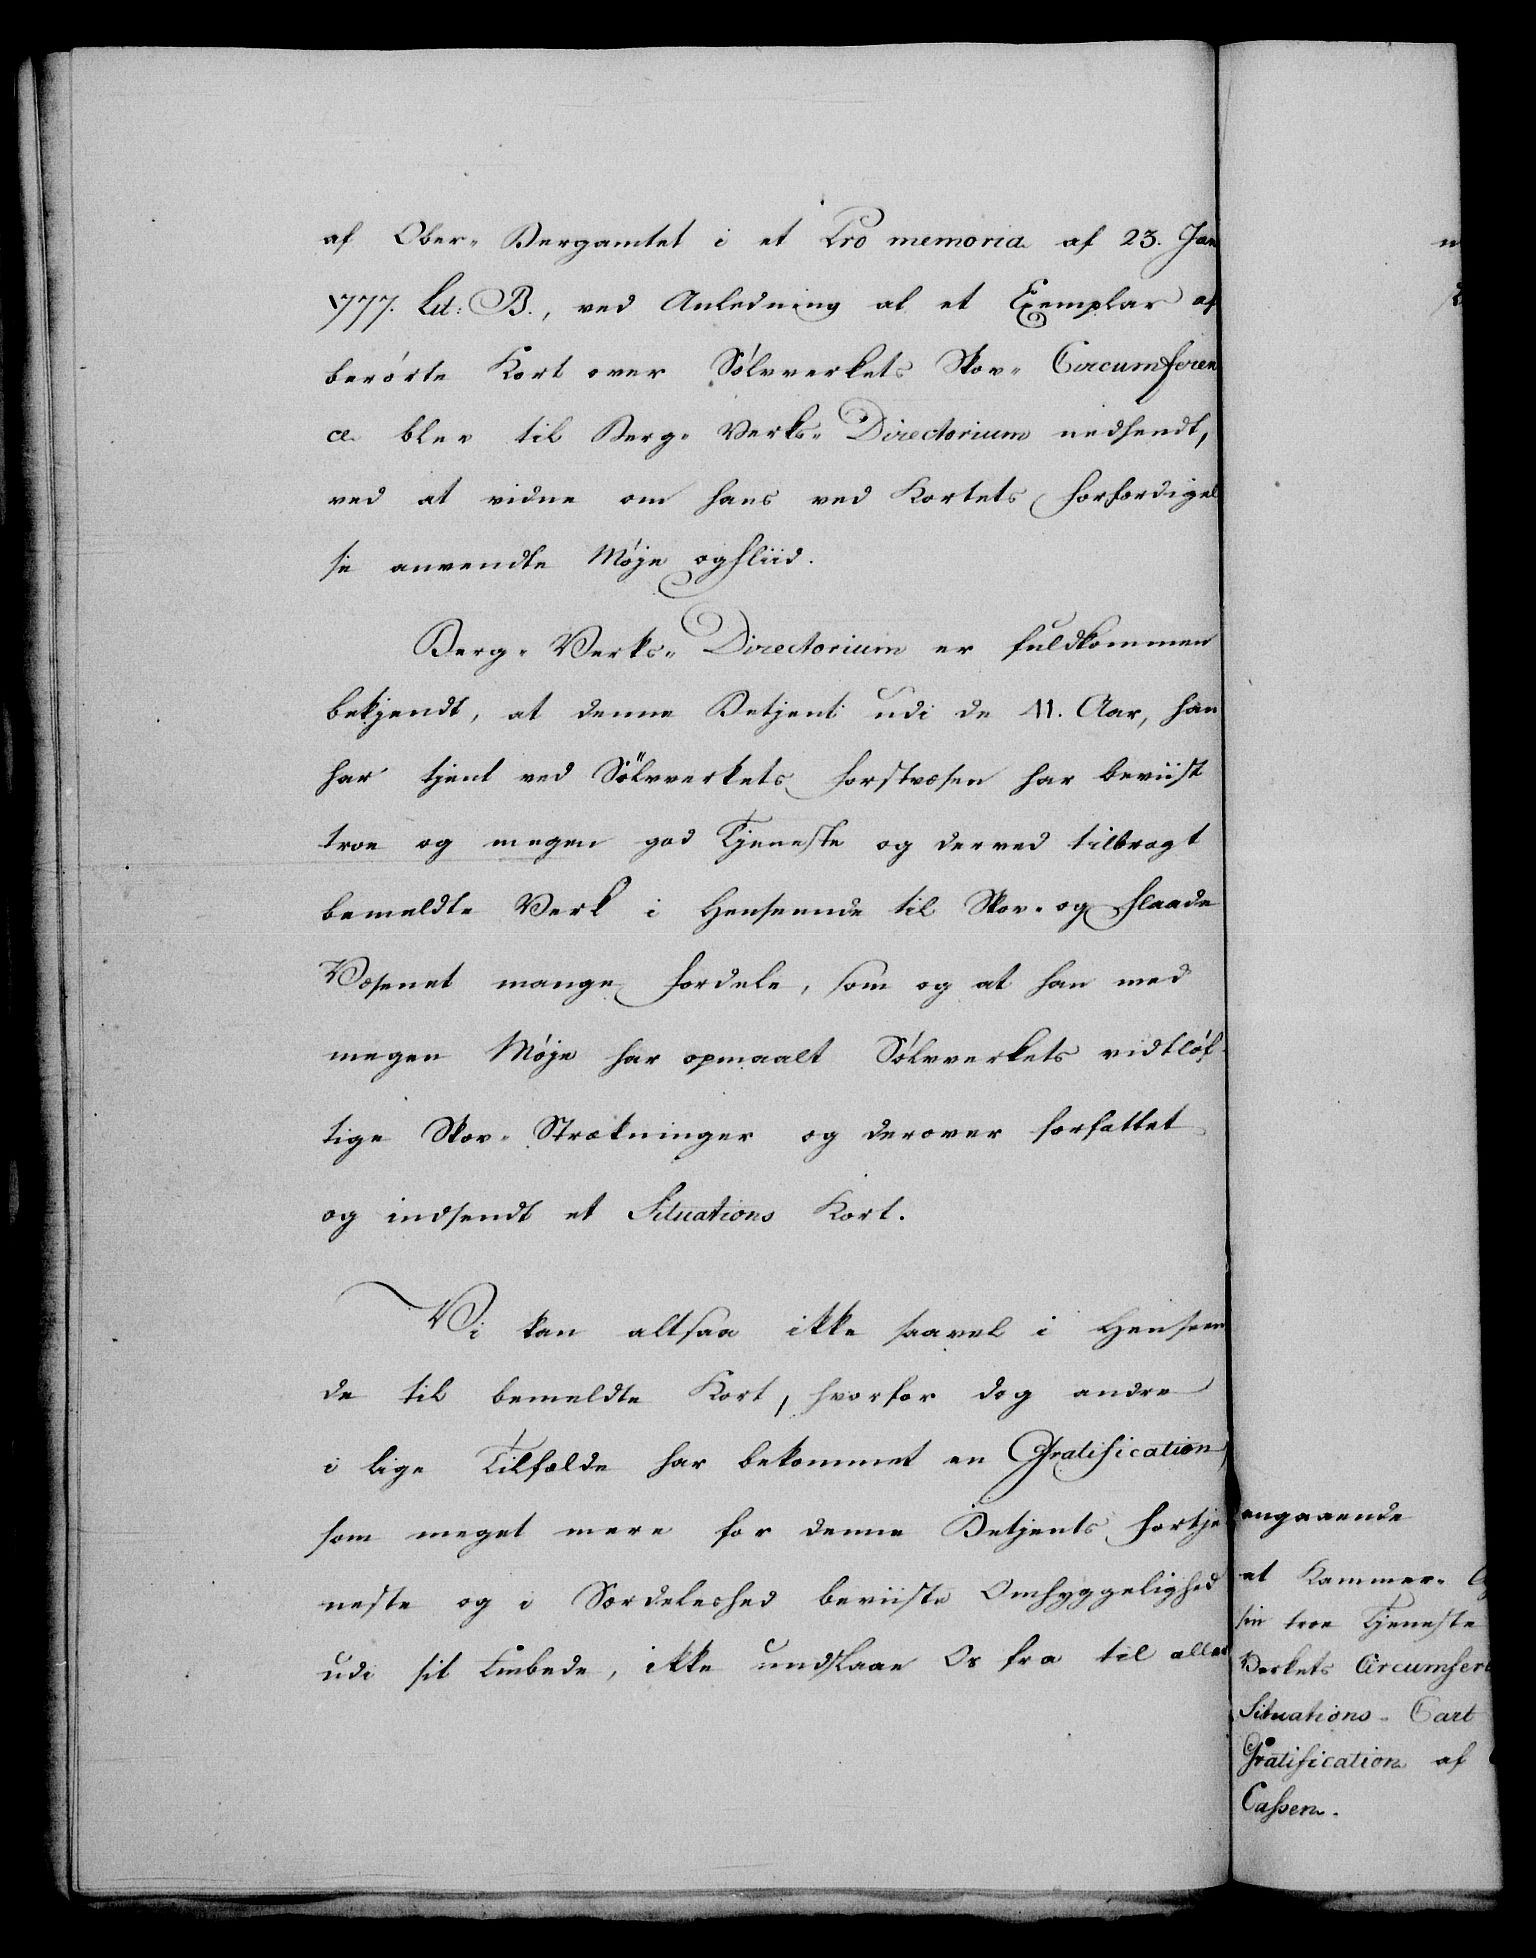 af Ober-Bergamtet i et Pro memoria af 23. Jan
1777. Lit: B., ved Anledning at et Exemplar af
berørte Kort over Sølvverkets Skov-Circumferen
ce blev til Berg-Verks-Directorium nedsendt,
ved at vidne om hans ved Kortets Forfærdigel
se anvendte Møje og Fliid.
Berg-Verks-Directorium er fuldkommen
bekjendt, at denne Betjent udi de 11. Aar, han
har tjent ved Sölvverkets Forstvæsen har beviist
troe og megen god Tjeneste og derved tilbragt
bemeldte Verk i Henseende til Skov- og Flaade
Væsenet mange Fordele, som og at han med
megen Møje har opmaalt Sølvverkets vidtløf-
tige Skov-Strækninger og derover forfattet
og indsendt et Situations Kort.
Vi kan altsaa ikke saavel i Henseen
de til bemeldte Kort, hvorfor dog andre
i lige Tilfælde har bekommet en Gratification,
som meget mere for denne Betjents Fortje
neste og i Særdeleshed beviiste Omhyggelighed
udi sit Embede, ikke undslaae Os fra til aller
angaaende
et Kammer-
sin troe Tjeneste
Verkets Circumfere
Situations-Cart
Gratification af
Cassen.